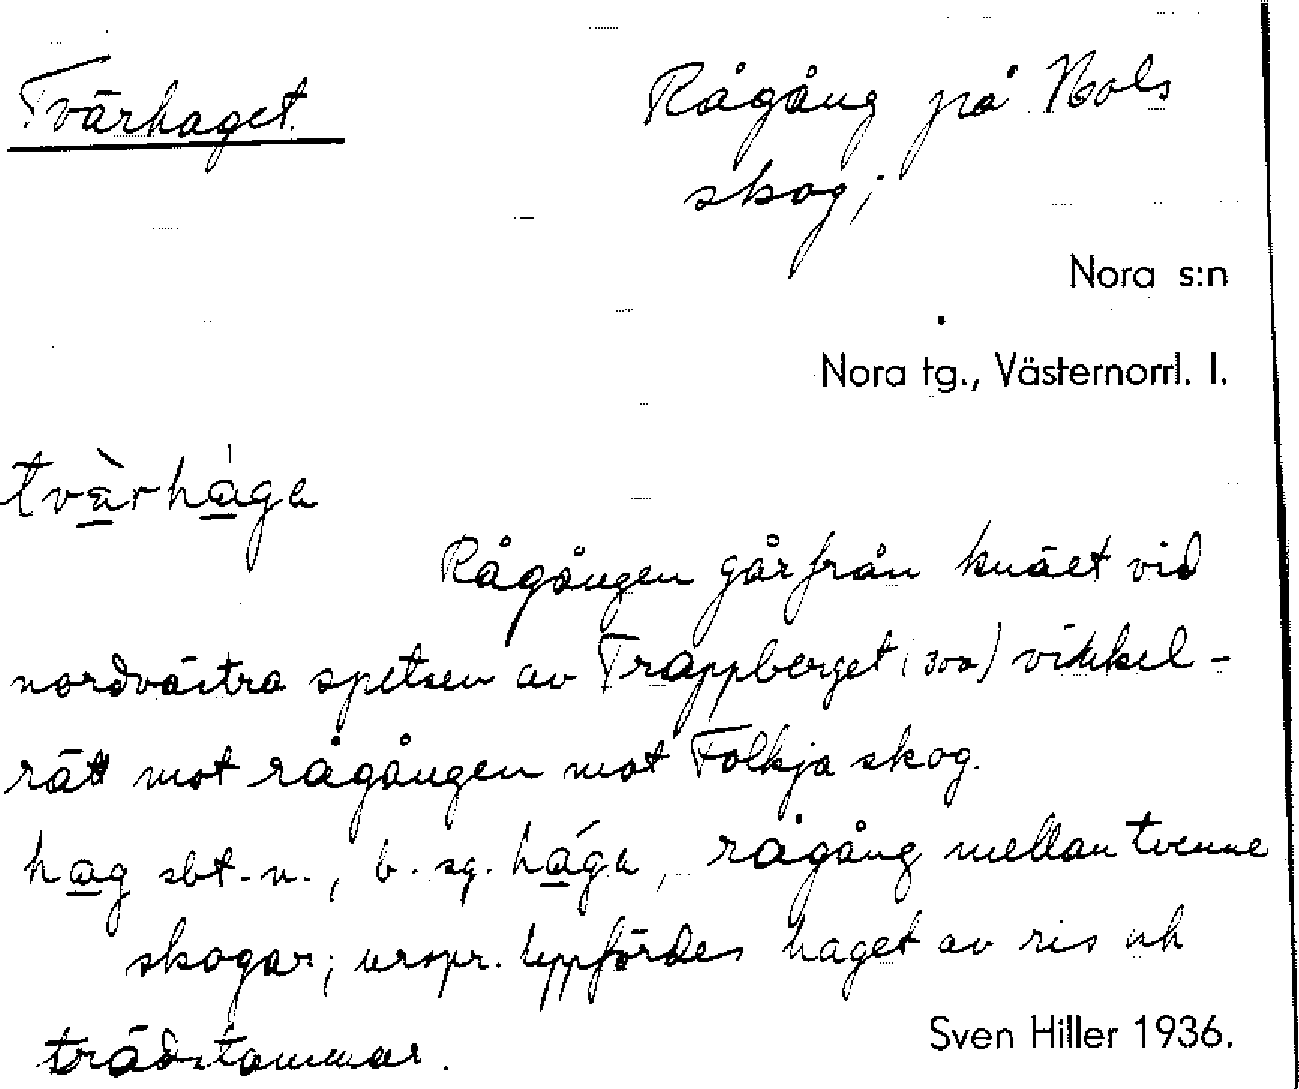 Tvärhaget.
Rågång på Nols
skog;
Nora s:n
Nora tg., Västernorrl. l.
tvàrhága
Rågången går från knäet vid
nordvästra spetsen av Trappberget (300) vinkel-
rätt mot rågången mot Folkja skog.
hag sbt. n., b. sg. hága, rågång mellan tvenne
skogar; urspr. uppfördes haget av ris och
trädstammar.
Sven Hiller 1936.